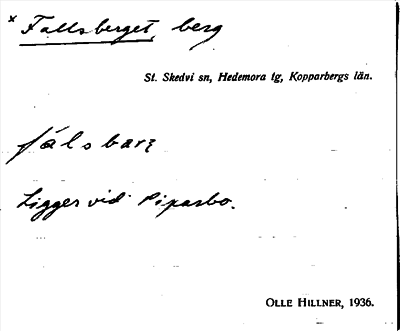 x Fallsberget, berg
St. Skedvi sn, Hedemora tg, Kopparbergs län.
fálsbarɛ
Ligger vid Piparbo.
OLLE HILLNER, 1936.